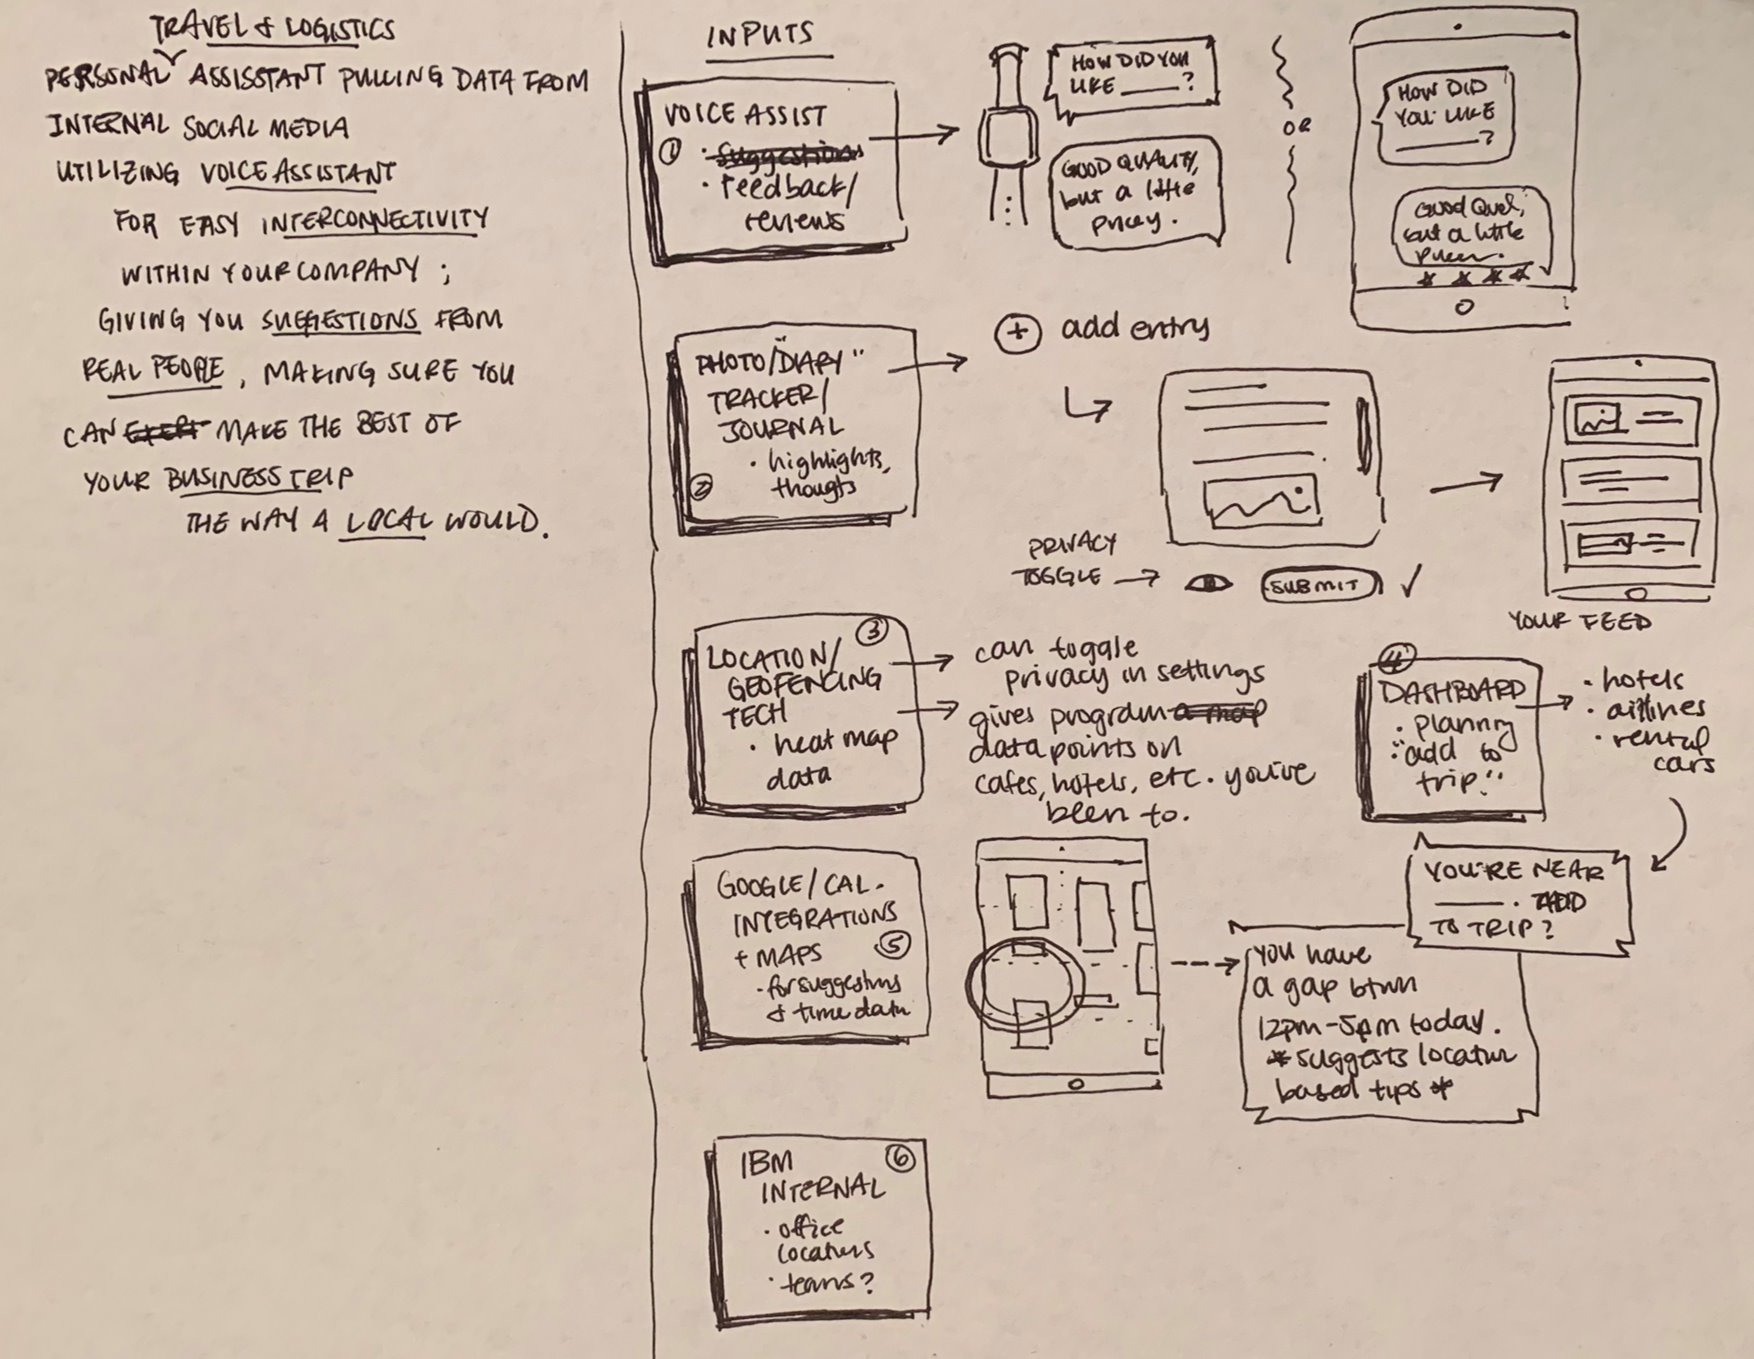 TRAVEL & LOGISTICS
PERSONAL ASSISSTANT PULLING DATA FROM
INTERNAL SOCIAL MEDIA
UTILIZING VOICE ASSISTANT
FOR EASY INTERCONNECTIVITY
WITHIN YOUR COMPANY ;
GIVING YOU SUGGESTIONS FROM
REAL PEOPLE, MAKING SURE YOU
CAN MAKE THE BEST OF
YOUR BUSINESS TRIP
THE WAY A LOCAL WOULD.
INPUTS
VOICE ASSIST
① · suggestions
· feedback/
reviews
HOW DID YOU
LIKE ____ ?
GOOD QUALITY,
but a little
pricey.
OR
HOW DID
YOU LIKE
____?
Good Qual,
but a little
PHOTO/"DIARY"
TRACKER/
JOURNAL
· highlights,
② thougts
+ add entry
PRIVACY
TOGGLE →
SUBMIT ✓
YOUR FEED
③
LOCATION/
GEOFENCING
TECH
· heat map
data
can toggle
privacy in settings
gives program a map
data points on
cafes, hotels, etc. you've
been to.
④
DASHBOARD
· planning
· "add to
trip"
· hotels
· airlines
· rental
cars
YOU'RE NEAR
____. ADD
TO TRIP?
GOOGLE/CAL.
INTEGRATIONS
+ MAPS ⑤
· for suggestions
& time data
you have
a gap btwn
12pm-5pm today.
*suggests location
based tips *
IBM ⑥
INTERNAL
· office
locations
· teams?